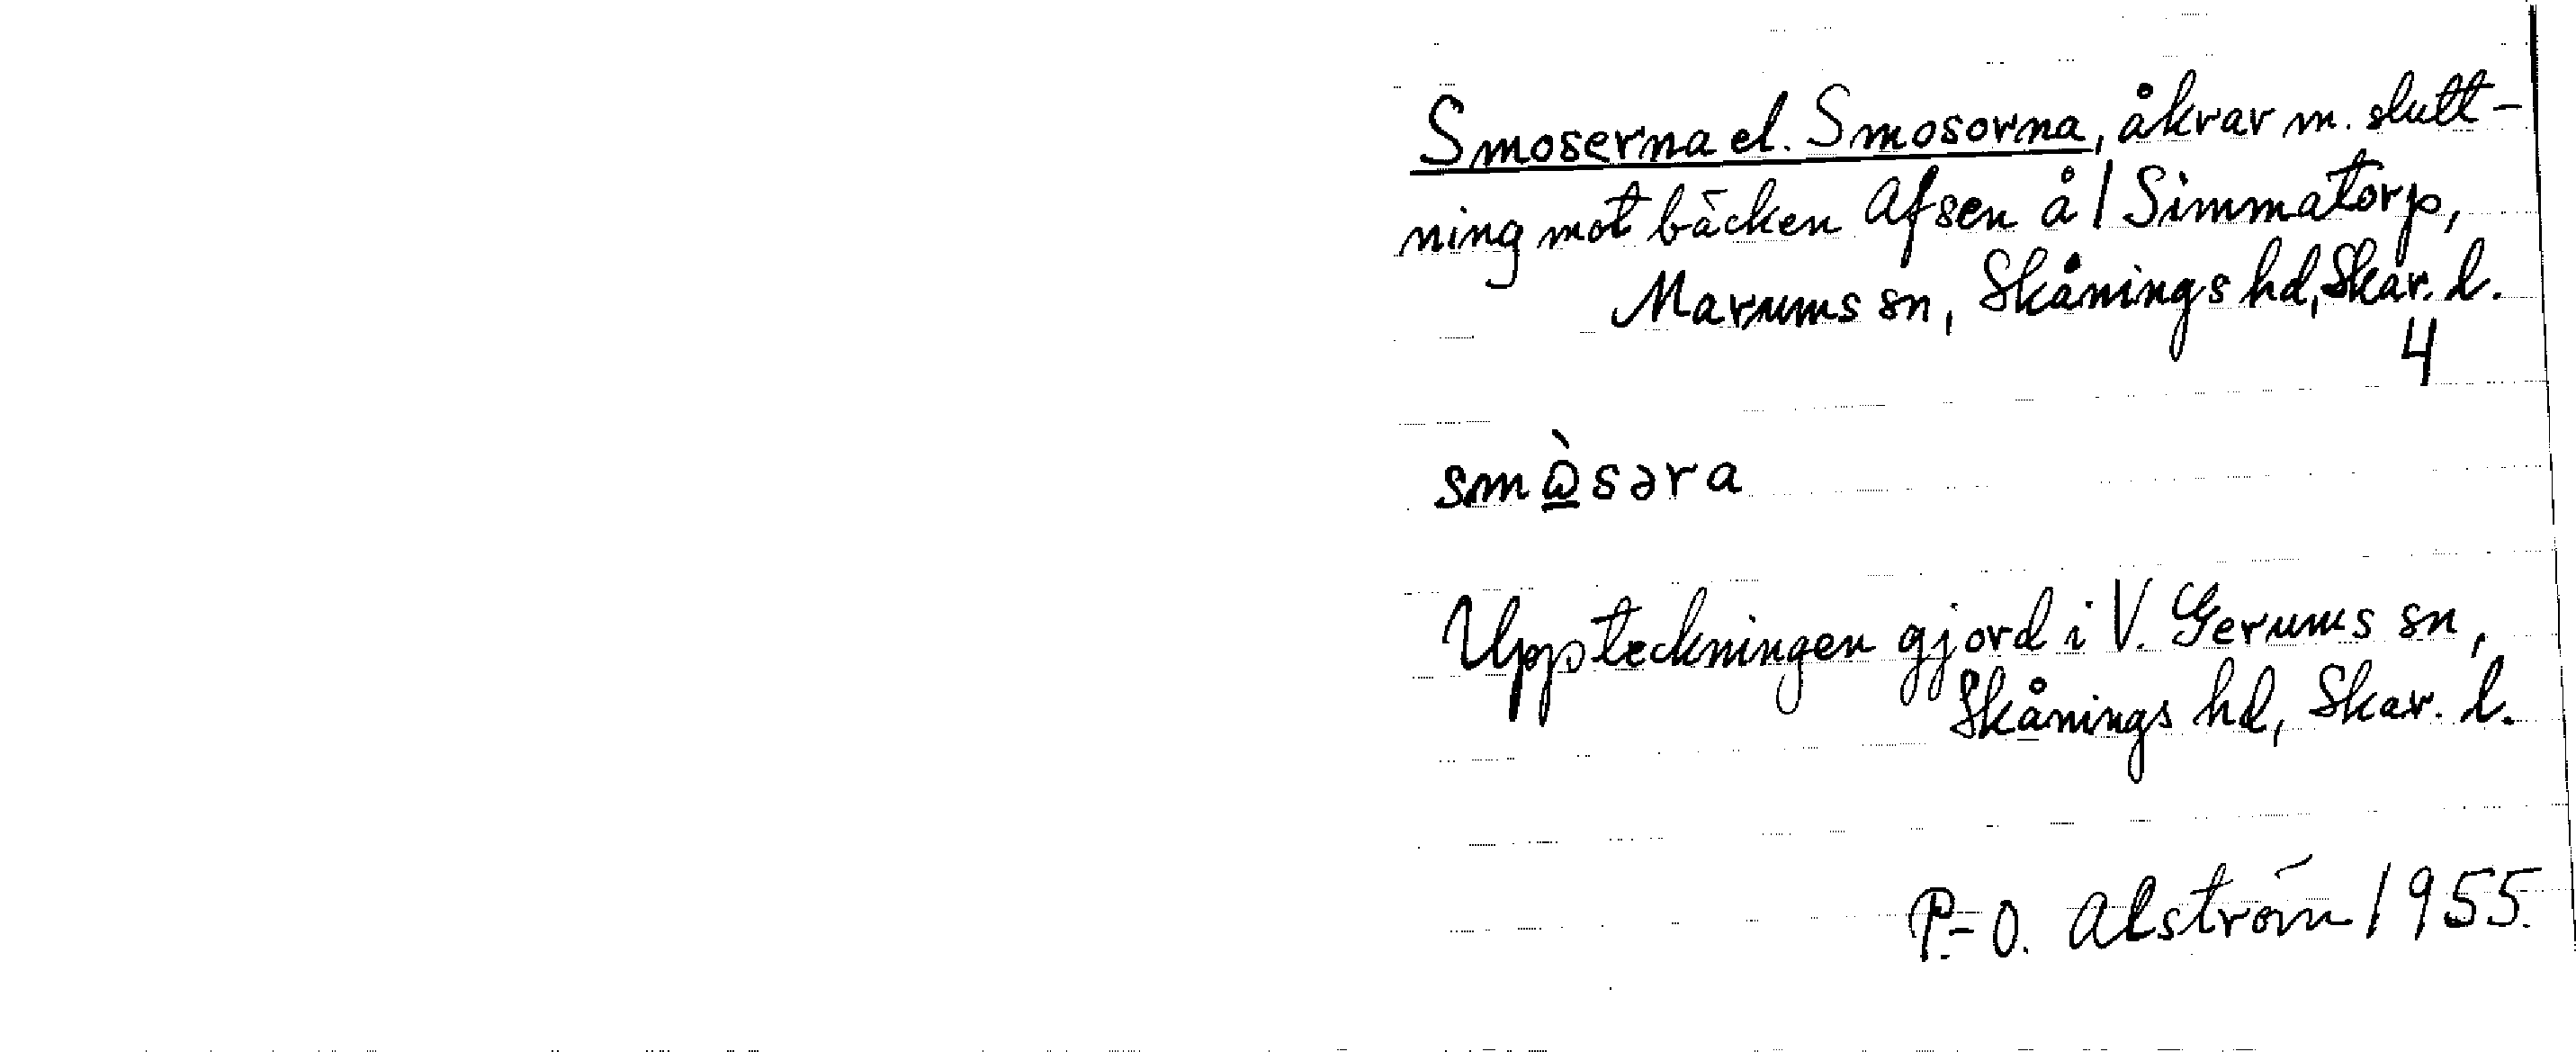 Smoserna el. Smosorna, åkrar m. slutt-
ning mot bäcken Afsen å 1 Simmatorp,
Marums sn, Skånings hd, Skar. l.
4
smὼsəra
Uppteckningen gjord i V. Gerums sn,
Skånings hd, Skar. l.
P.-O. Alström 1955.